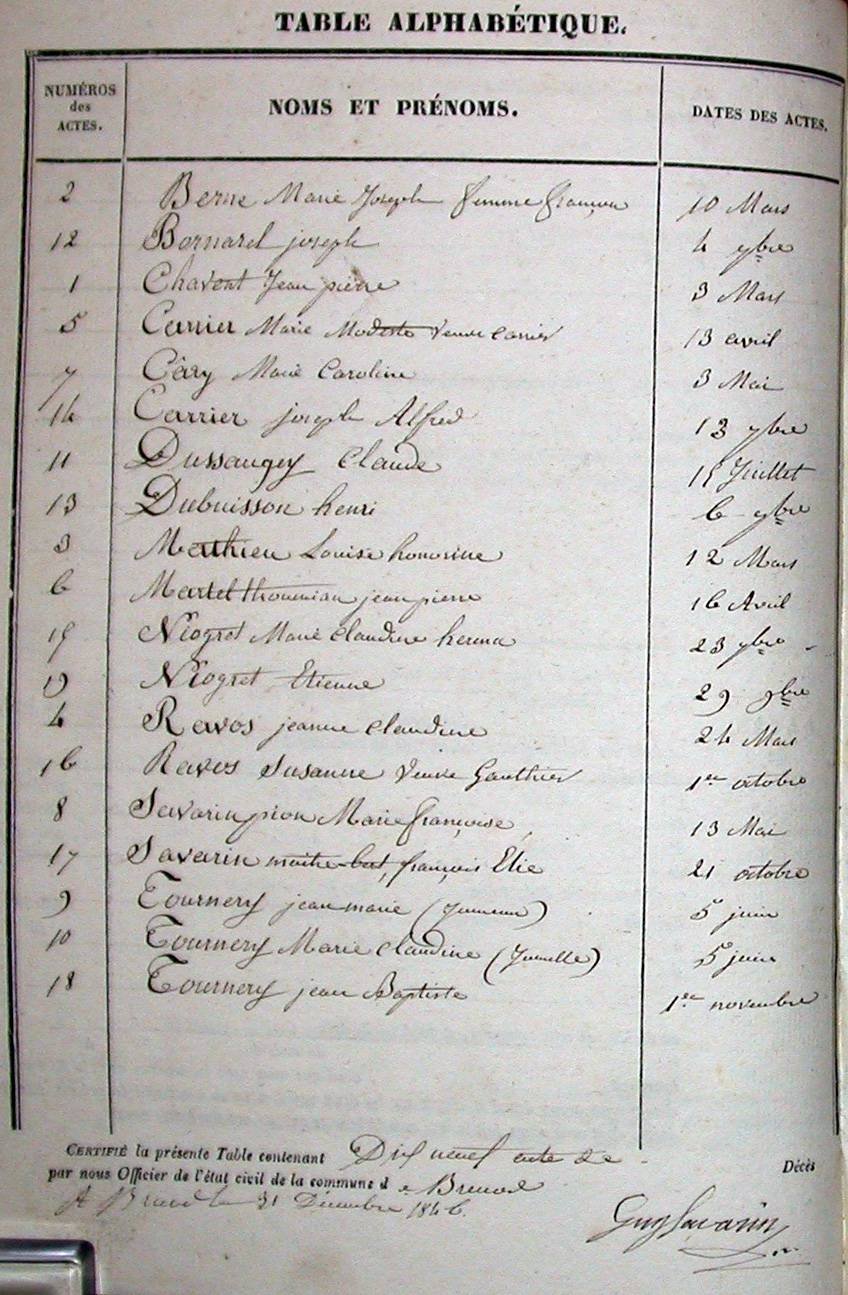 TABLE ALPHABÉTIQUE.
NUMÉROS des ACTES. NOMS ET PRÉNOMS. DATES DES ACTES.
2 Berne Marie Joseph femme françon 10 Mars
12 Bornarel joseph 4 7bre
1 Chavent Jean pierre 3 Mars
5 Carrier Marie Modeste veuve carrier 13 avril
7 Câry Marie Caroline 3 Mai
14 Carrier joseph Alfred 13 7bre
11 Dussaugey Claude 15 Juillet
13 Dubuisson henri 6 7bre
3 Matthieu Louise honorine 12 Mars
6 Martel jean pierre 16 Avril
15 Niogret Marie Claudine 23 7bre
19 Niogret Etienne 29 9bre
4 Ravos jeanne Claudine 24 Mars
16 Ravos Susanne veuve Gauthier 1er octobre
8 Savarin pion Marie françoise 13 Mai
17 Savarin françois Elie 21 octobre
9 Tournery jean marie (Jumeau) 5 juin
10 Tournery Marie Claudine (Jumelle) 5 juin
18 Tournery jean Baptiste 1er novembre
CERTIFIÉ la présente Table contenant Dix neuf acte de Décès
par nous Officier de l'état civil de la commune d e Brenod
A Brenod le 31 Décembre 1846.
Guy Savarin